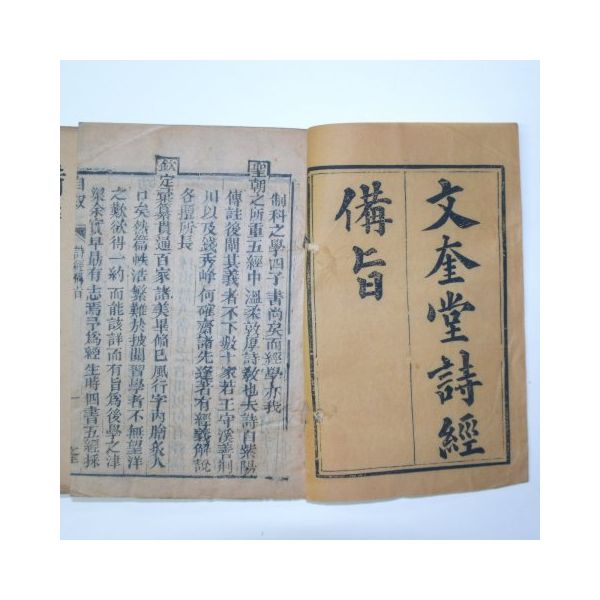 文奎堂詩經
備旨
制科之學四子書尚矣而經學亦我
聖朝之所重五經中溫柔敦厚詩教也夫詩自紫陽
傳註後闡其義者不下數十家若王守溪善荊
川以及錢秀峰何確齋諸先達著有經義解說
各擅所長
欽定彙纂貫通百家諸美畢備巳風行宇內膾炙人
口矣然篇帙浩繁難於披閱習學者不無望洋
之歎欲得一約而能該詳而有旨為後學之津
梁余實早易有志焉寻為經生時四書五經採
自叙
詩經備旨